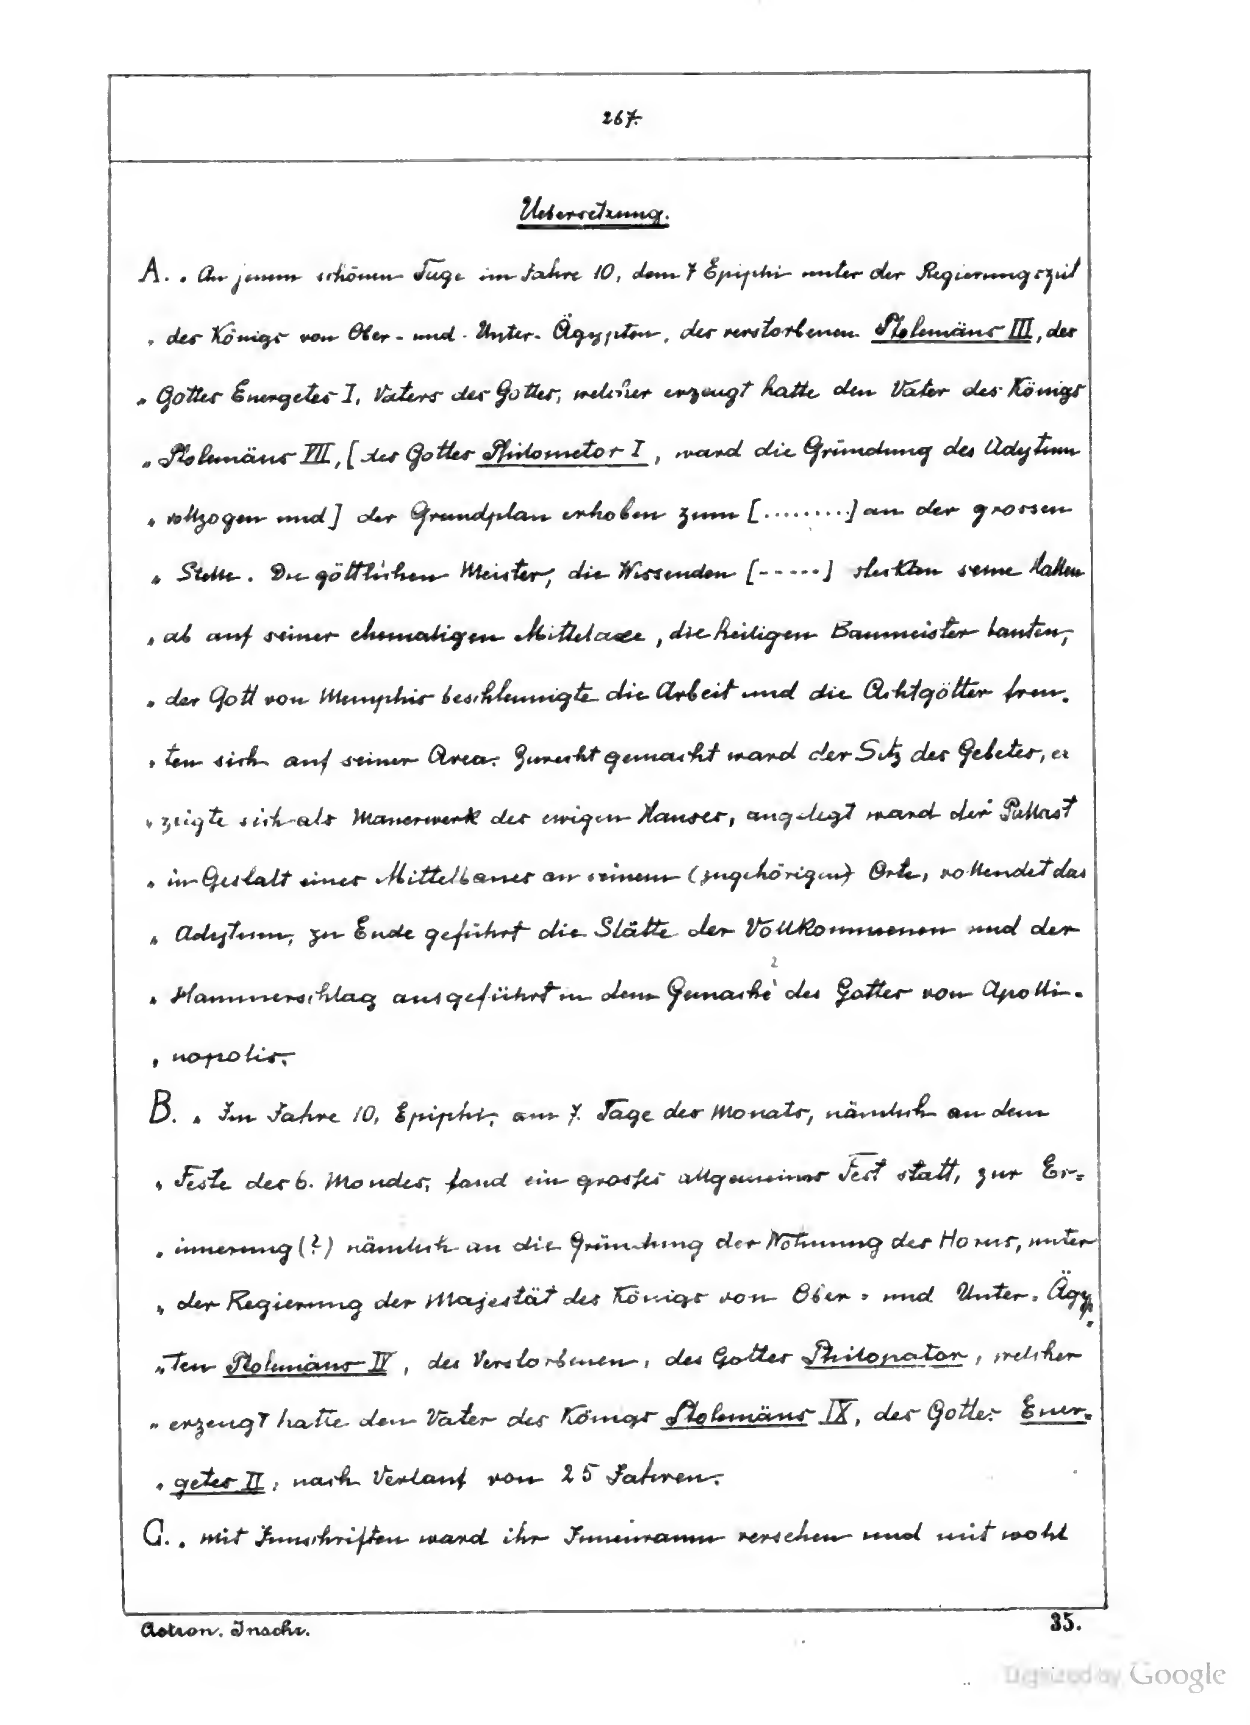 267.
Uebersetzung.
A. „ An jenem schönen Tage im Jahre 10, dem 7 Epiphi unter der Regierungszeit
„ des Königs von Ober- und Unter-Ägypten, des verstorbenen Ptolemäus III, des
„ Gottes Euergetes I, Vaters des Gottes, welcher erzeugt hatte den Vater des Königs
„ Ptolemäus VII, [des Gottes Philometor I, ward die Gründung des Adytum
„ vollzogen und] der Grundplan erhoben zum [.........] an der grossen
„ Stelle. Die göttlichen Meister, die Wissenden [-----] steckten seine Hallen
„ ab auf seiner ehemaligen Mittelaxe, die heiligen Baumeister bauten,
„ der Gott von Memphis beschleunigte die Arbeit und die Achtgötter freu-
„ ten sich auf seiner Area. Zurecht gemacht ward der Sitz des Gebetes, er
„ zeigte sich als Mauerwerk des ewigen Hauses, angelegt ward der Pallast
„ in Gestalt eines Mittelbaues an seinem (zugehörigen) Orte, vollendet das
„ Adytum, zu Ende geführt die Stätte der Vollkommenen und der
„ Hammerschlag ausgeführt in dem Gemache des Gottes von Apolli-
„ nopolis.
B. „ Im Jahre 10, Epiphi, am 7. Tage des Monats, nämlich an dem
„ Feste des 6. Mondes, fand ein grosses allgemeines Fest statt, zur Er-
„ innerung (?) nämlich an die Gründung der Wohnung des Horus, unter
„ der Regierung der Majestät des Königs von Ober- und Unter-Ägyp-
„ ten Ptolemäus IV, des Verstorbenen, des Gottes Philopator, welcher
„ erzeugt hatte den Vater des Königs Ptolemäus IX, des Gottes Euer-
„ getes II, nach Verlauf von 25 Jahren.
C. „ mit Innschriften ward ihr Innenraum versehen und mit wohl
Astron. Inschr.
35.
Digitized by Google